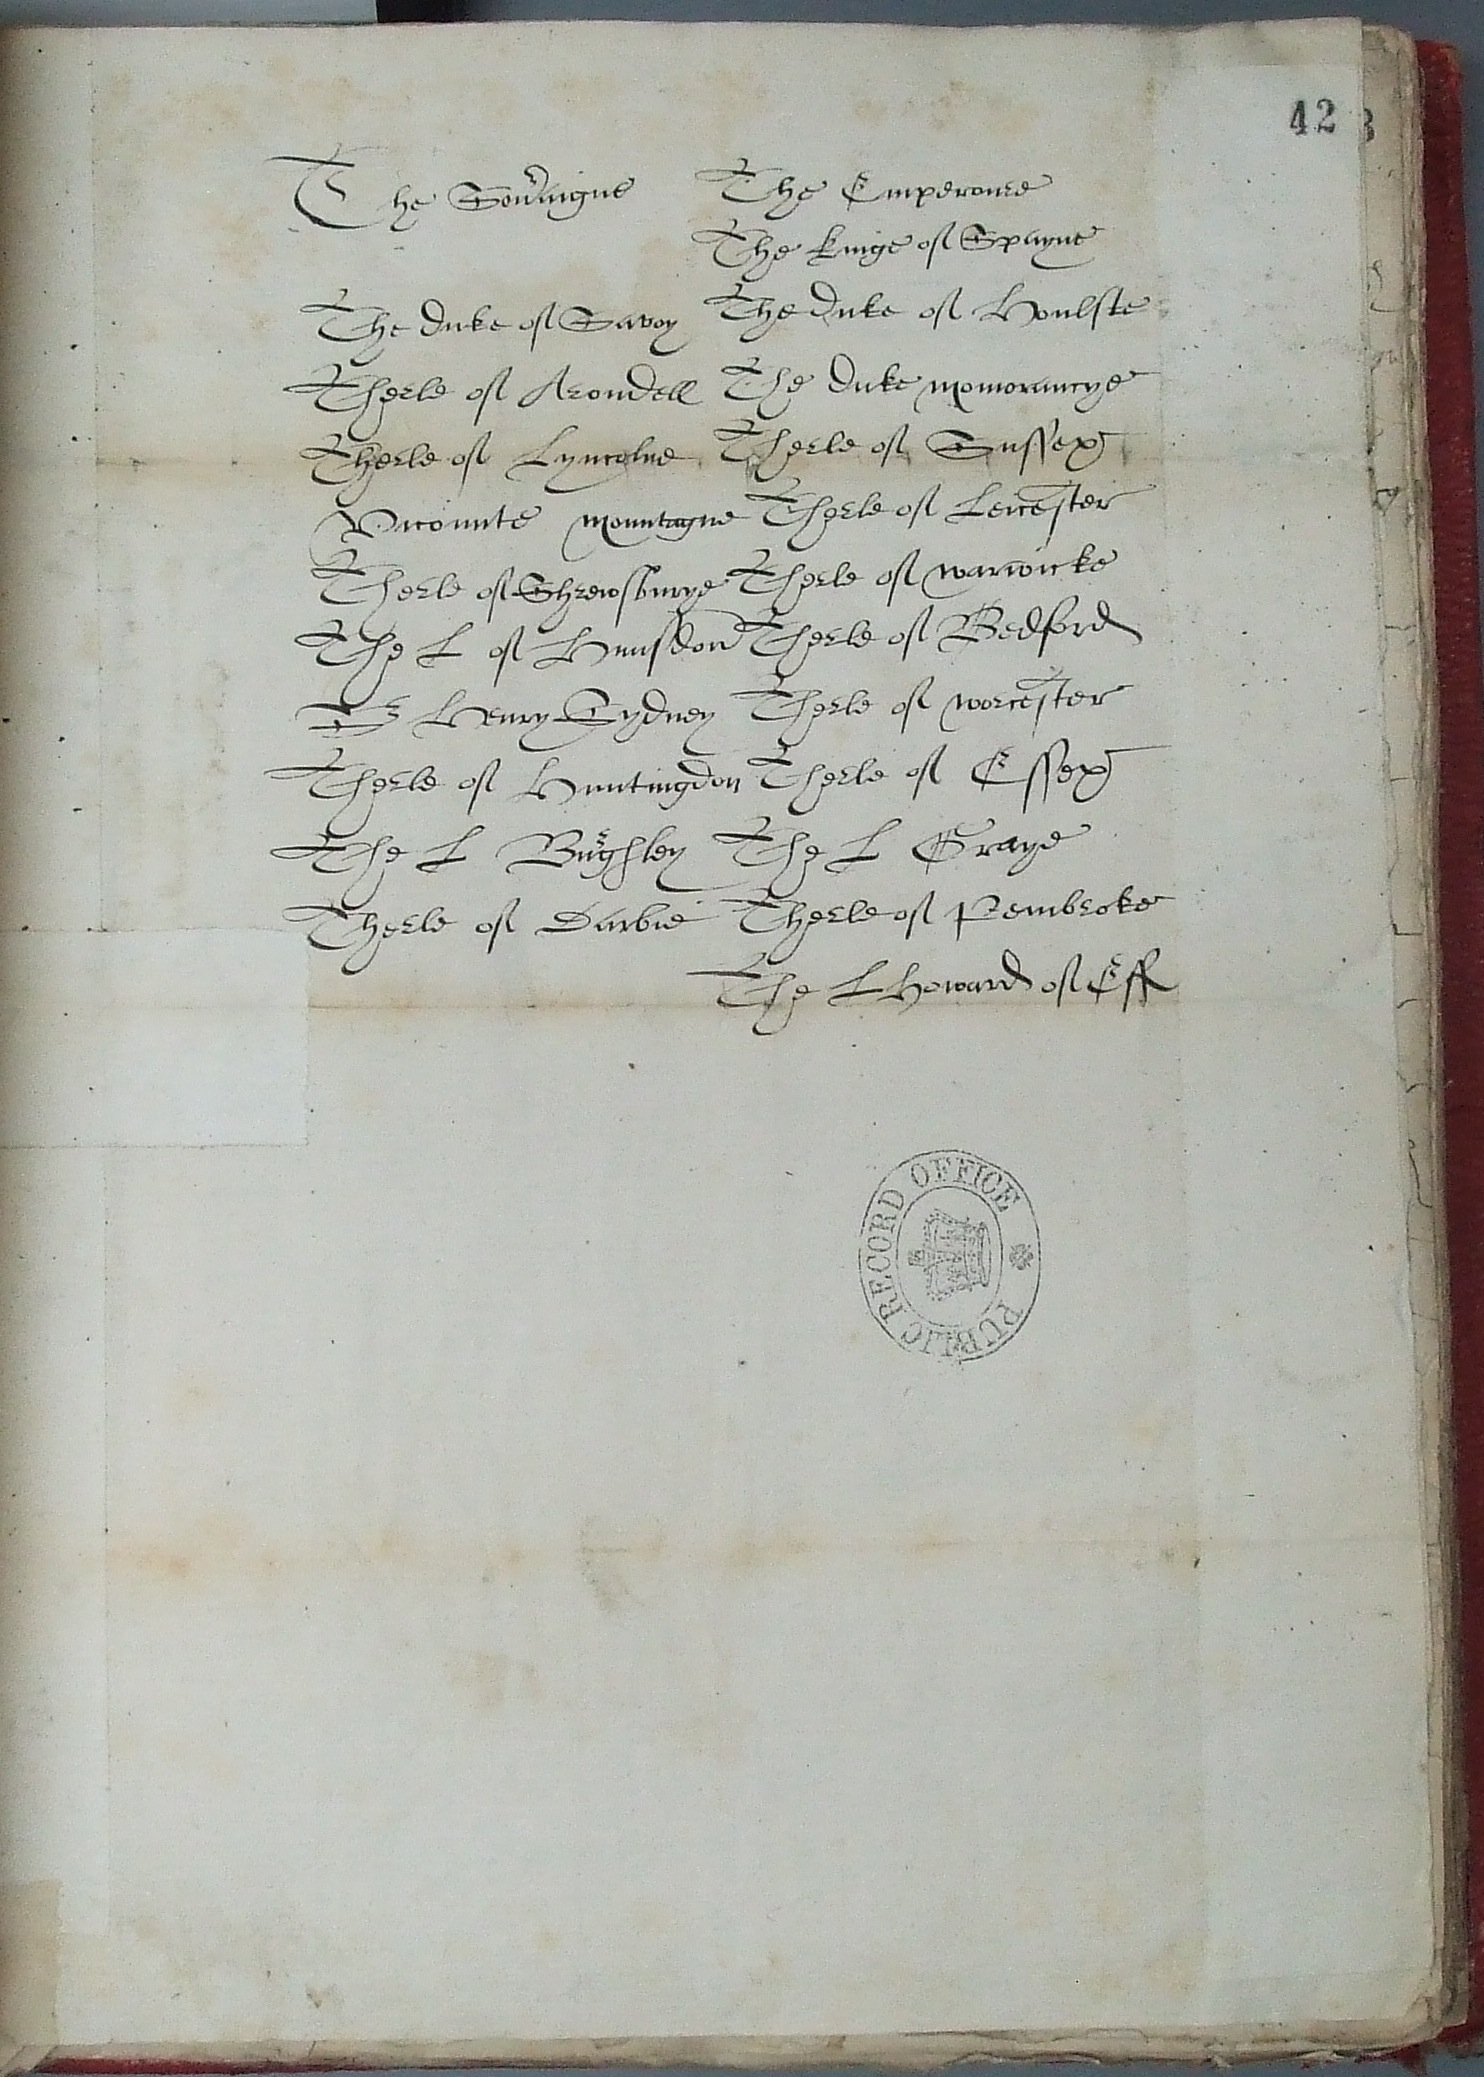 42
The Sou'aigne The Emperoure
The kinge of Spayne
The duke of Savoy The duke of Houlste
Therle of Arondell The duke momorancye
Therle of Lyncolne Therle of Sussex
Vicounte Mountague Therle of Leicester
Therle of Shrewsburye Therle of warwicke
The L of Hunsdon Therle of Bedford
Sr Henry Sydney Therle of worcester
Therle of Huntingdon Therle of Essex
The L Burghley The L Graye
Therle of Darbie Therle of Pembroke
The L Howard of Eff
PUBLIC RECORD OFFICE